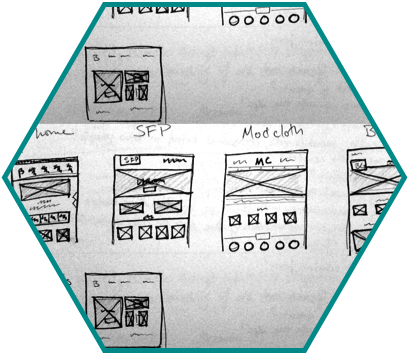 B
home SFP Modcloth B
SFP
MC
B